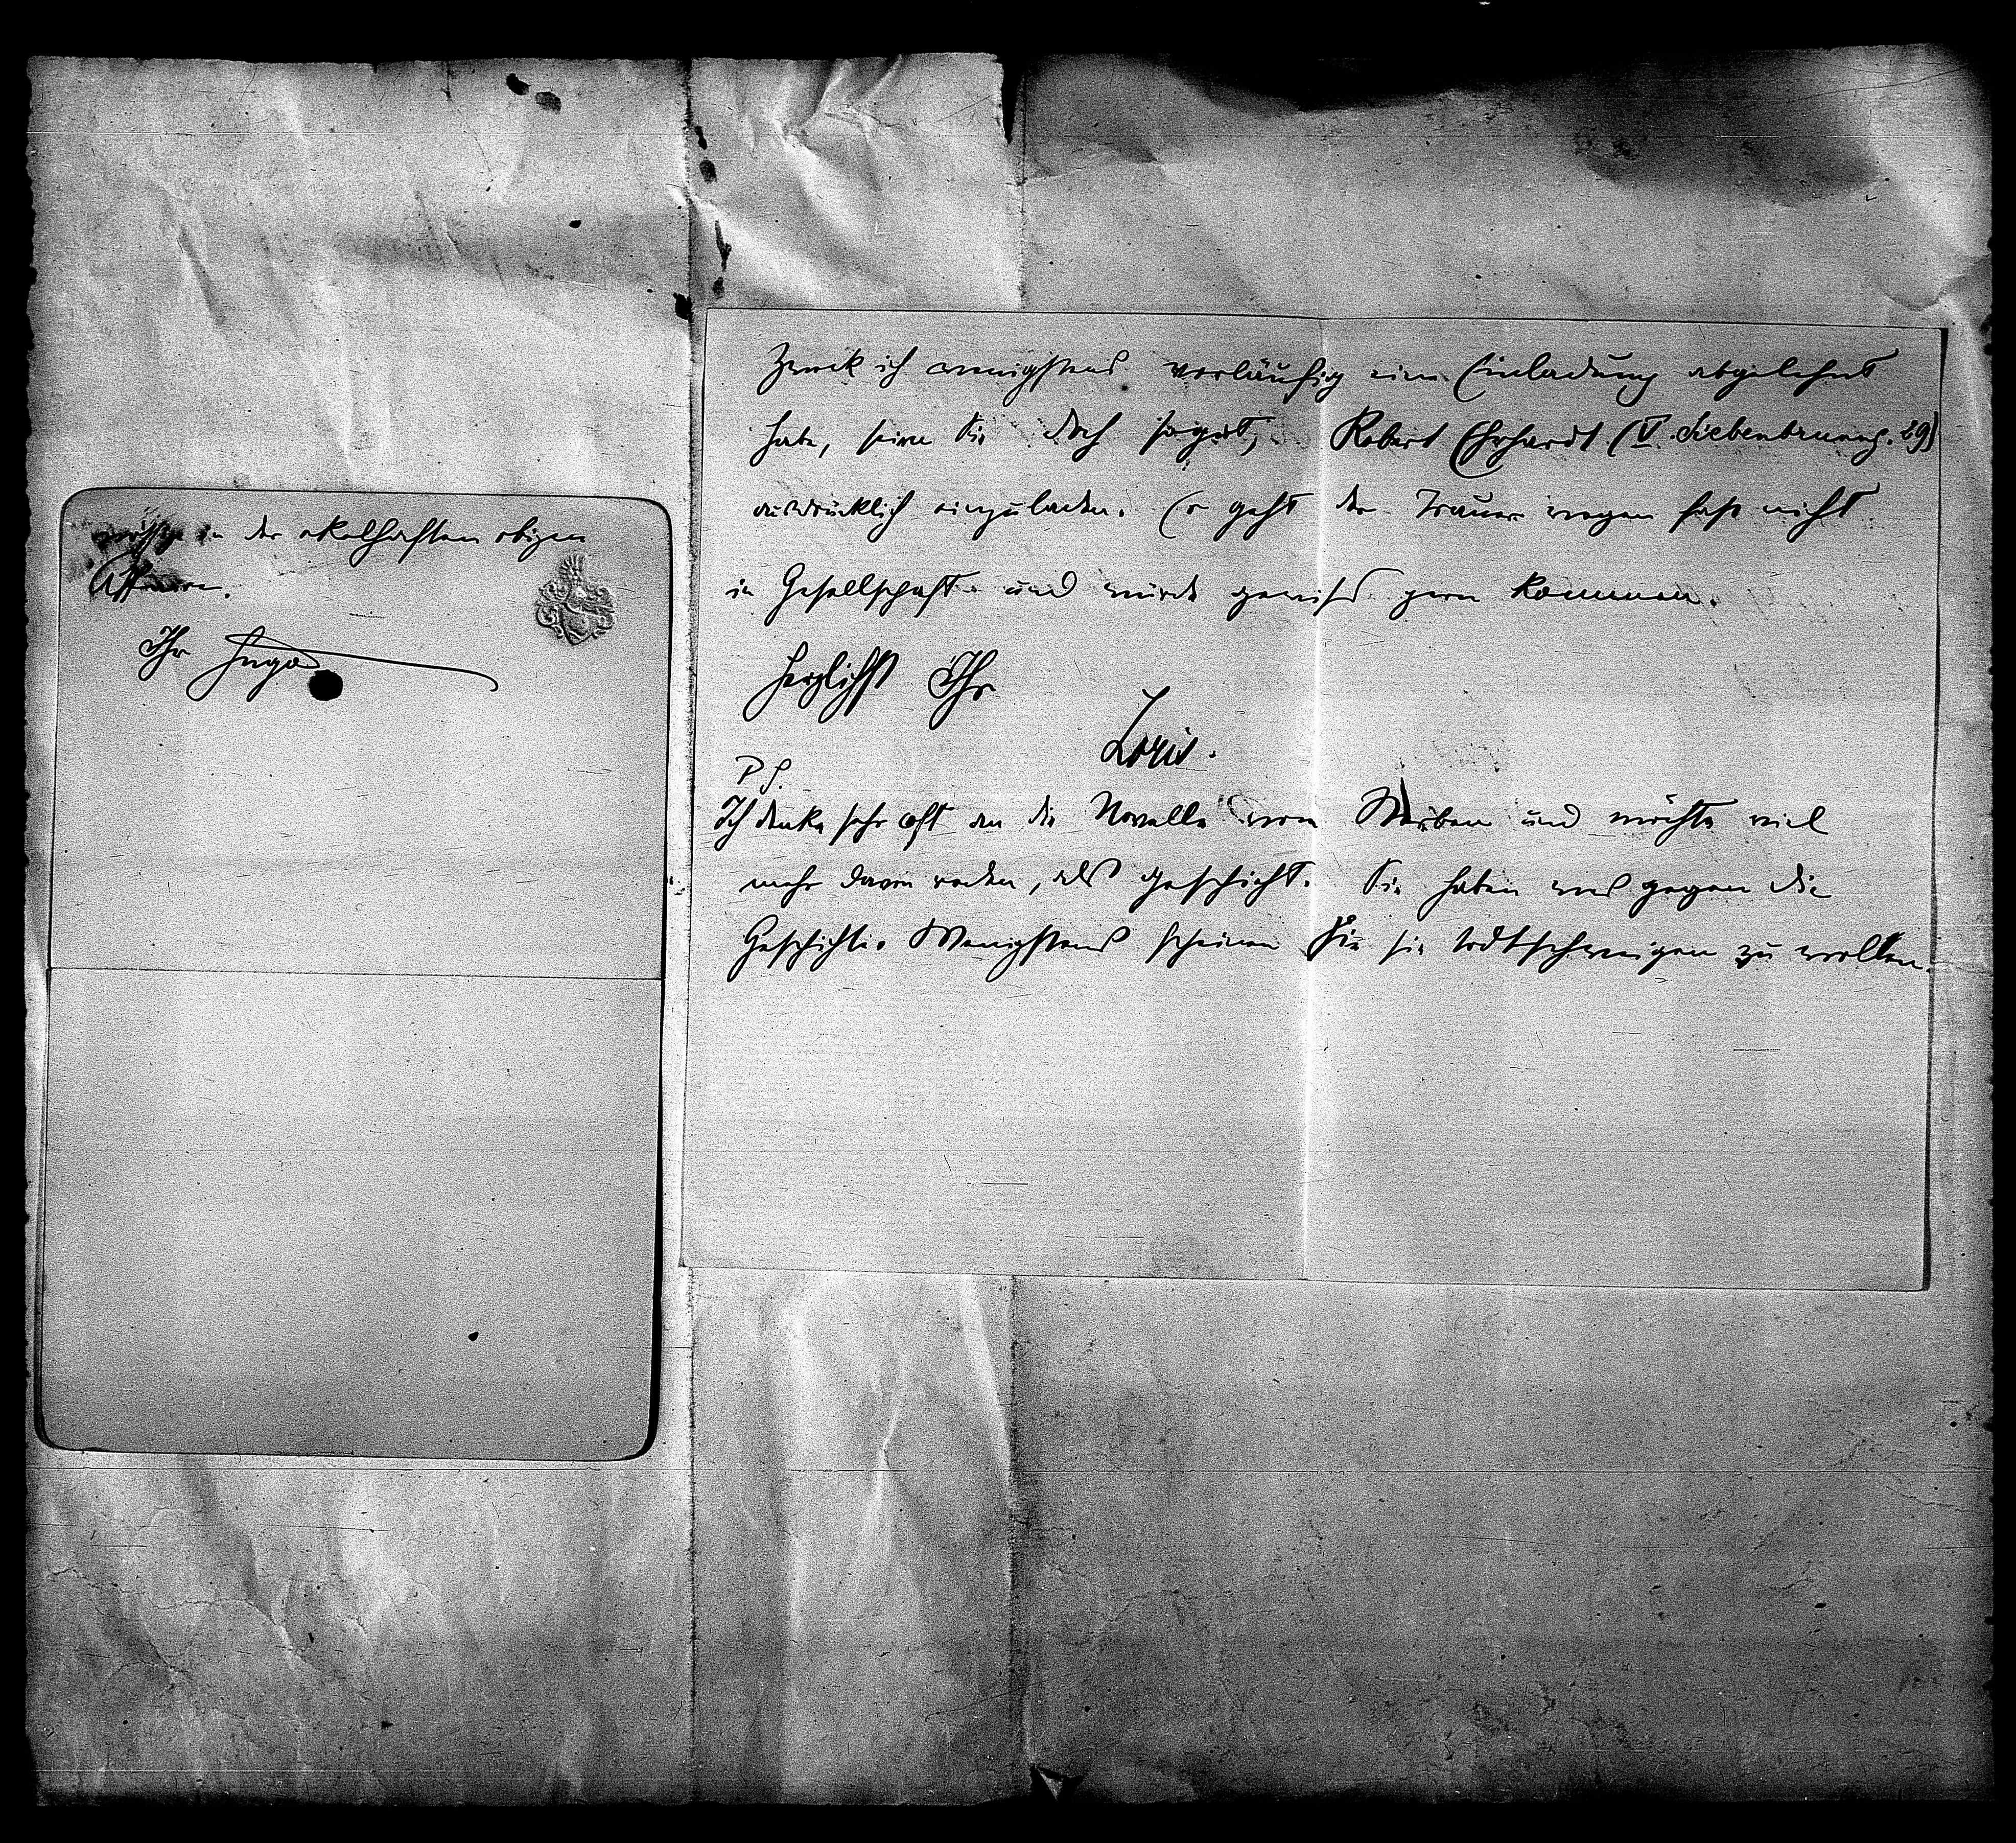 müssen in der ekelhaften obigen
Affaire.
Ihr Hugo
Zweck ich wenigstens vorläufig eine Einladung abgelehnt
habe, seien Sie doch so gut, Robert Ehrhardt (V. Siebenbrunng. 29)
ausdrücklich einzuladen. Er geht der Trauer wegen fast nicht
in Gesellschaft und würde gewiss gern kommen.
Herzlichst Ihr
Loris.
P. S.
Ich denke sehr oft an die Novelle vom Sterben und möchte viel
mehr davon reden, als geschieht. Sie haben was gegen die
Geschichte. Wenigstens scheinen Sie sie todtschweigen zu wollen.